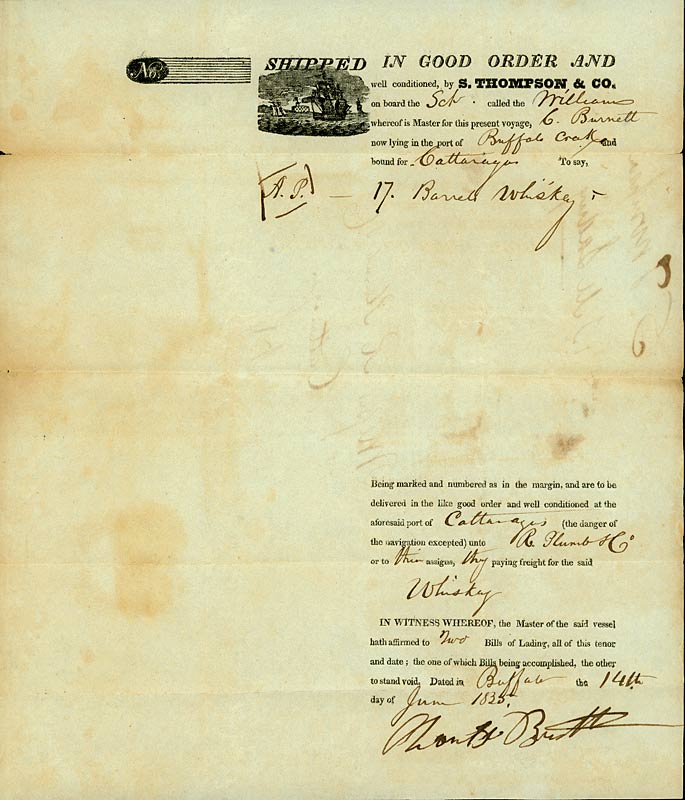 No.
SHIPPED IN GOOD ORDER AND
well conditioned, by S. THOMPSON & CO.
on board the Sch. called the William
whereof is Master for this present voyage, C. Burnett
now lying in the port of Buffalo Creek and
bound for Cattaragus To say,
A.P. — 17. Barrels Whiskey
Being marked and numbered as in the margin, and are to be
delivered in the like good order and well conditioned at the
aforesaid port of Cattaragus (the danger of
the navigation excepted) unto R. Plumb & Co
or to their assigns, they paying freight for the said
Whiskey
IN WITNESS WHEREOF, the Master of the said vessel
hath affirmed to Two Bills of Lading, all of this tenor
and date; the one of which Bills being accomplished, the other
to stand void. Dated in Buffalo the 14th
day of June 1835.